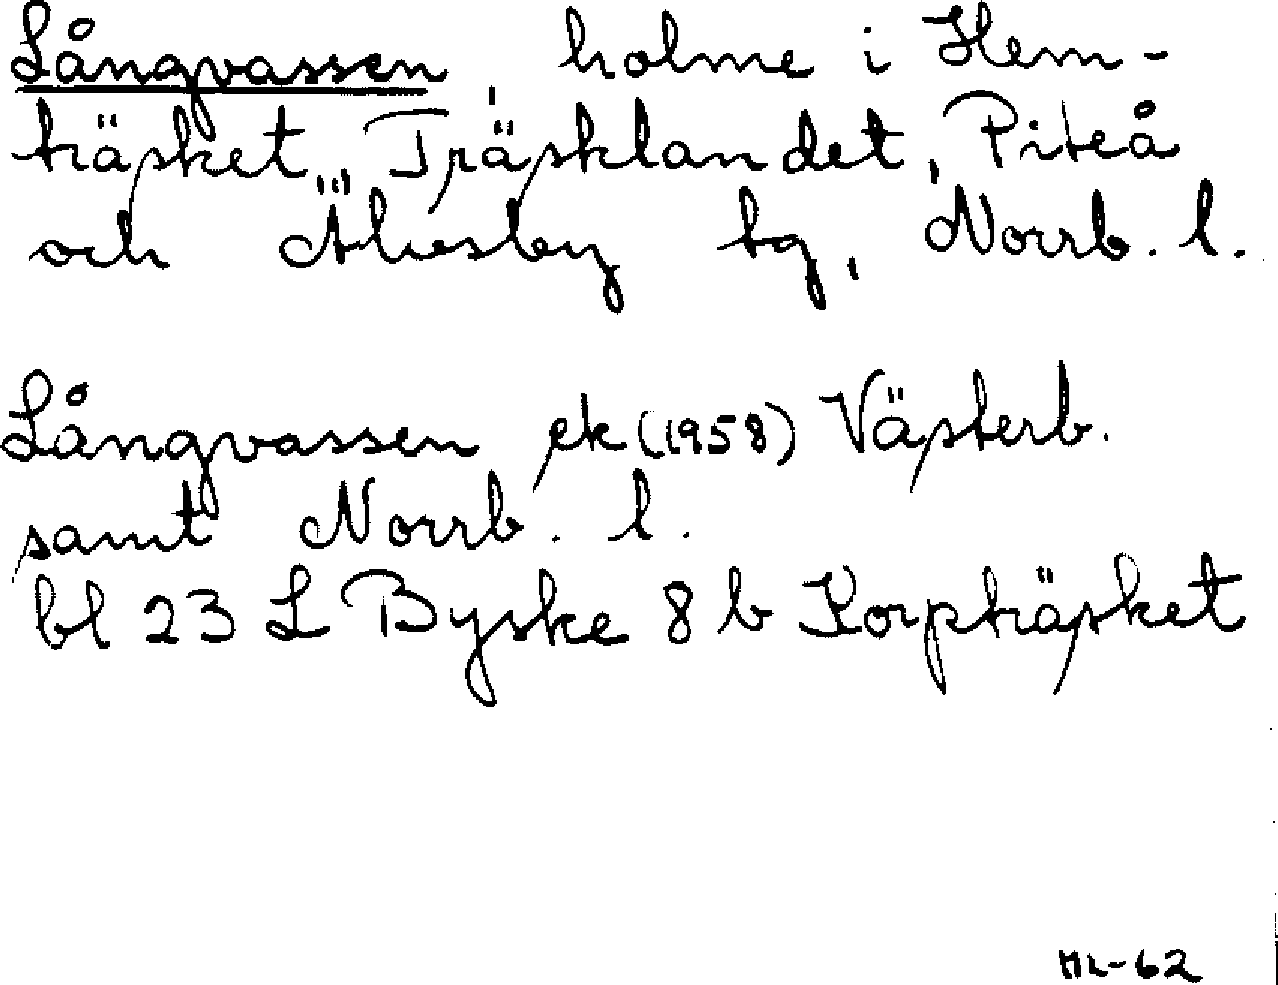 Långvassen, holme i Hem-
träsket, Träsklandet, Piteå
och Älvsby tg, Norrb. l.
Långvassen ek (1958) Västerb.
samt Norrb. l.
bl 23 L Byske 8 b Korpträsket
ML-62